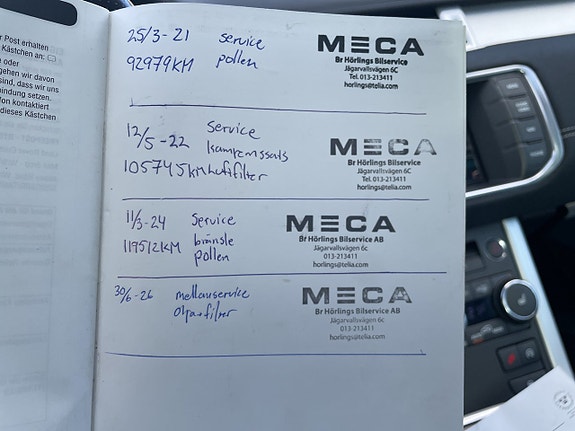 r Post erhalten
Kästchen an:
oder
gehen wir davon
sind, dass wir uns
indung setzen.
fon kontaktiert
dieses Kästchen
25/3-21 service
92979KM pollen
MECA
Br Hörlings Bilservice
Jägarvallsvägen 6C
Tel. 013-213411
horlings@telia.com
12/5-22 Service
kamremssats
105745KM luftfilter
MECA
Br Hörlings Bilservice
Jägarvallsvägen 6C
Tel. 013-213411
horlings@telia.com
11/3-24 Service
119512KM bränsle
pollen
MECA
Br Hörlings Bilservice AB
Jägarvallsvägen 6c
013-213411
horlings@telia.com
30/6-26 mellanservice
Olja+filter
MECA
Br Hörlings Bilservice AB
Jägarvallsvägen 6c
013-213411
horlings@telia.com